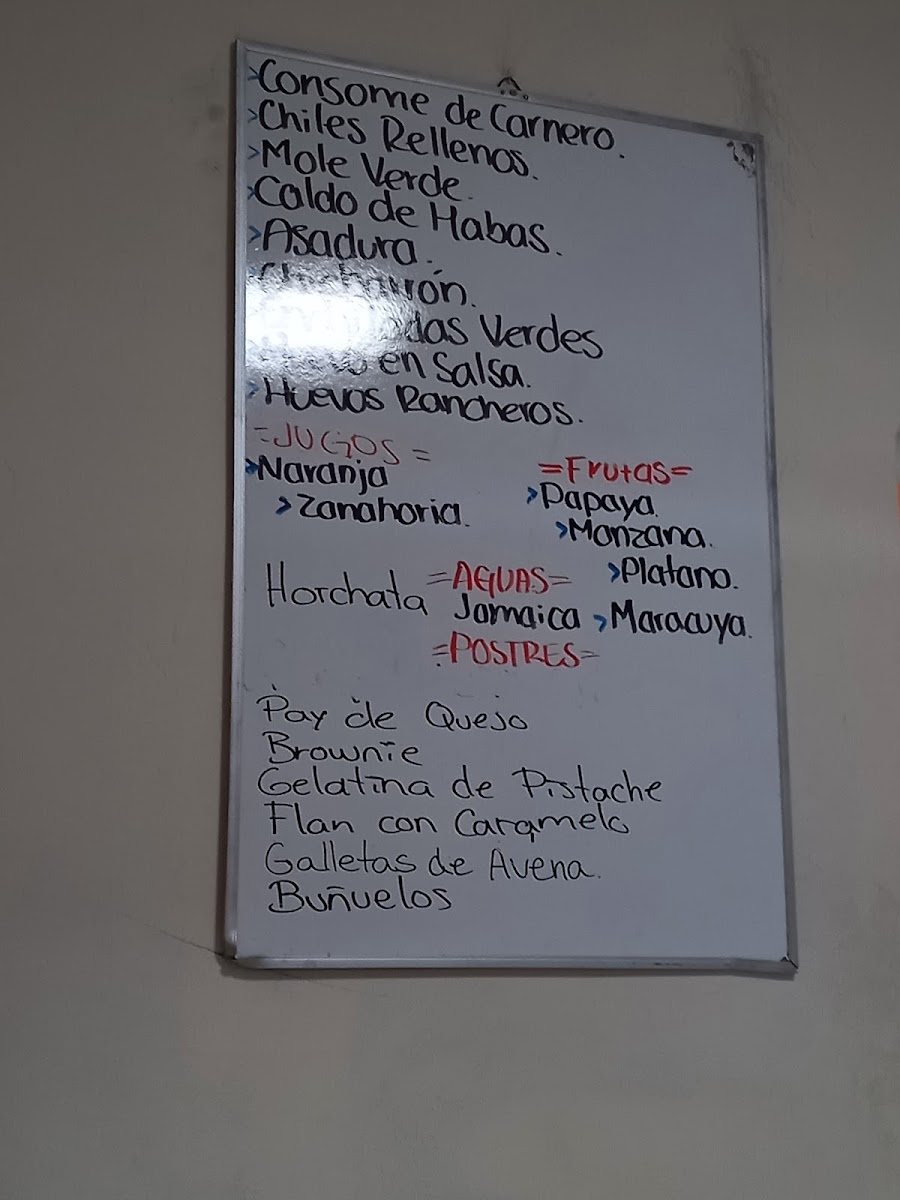 >Consome de Carnero.
>Chiles Rellenos.
>Mole Verde.
>Caldo de Habas.
>Asadura.
Verdes
en Salsa.
>Huevos Rancheros.
=JUGOS=
>Naranja
>Zanahoria.
=Frutas=
>Papaya.
>Manzana.
>Platano.
=AGUAS=
Horchata Jamaica >Maracuya.
=POSTRES=
Pay de Queso
Brownie
Gelatina de Pistache
Flan con Caramelo
Galletas de Avena.
Buñuelos